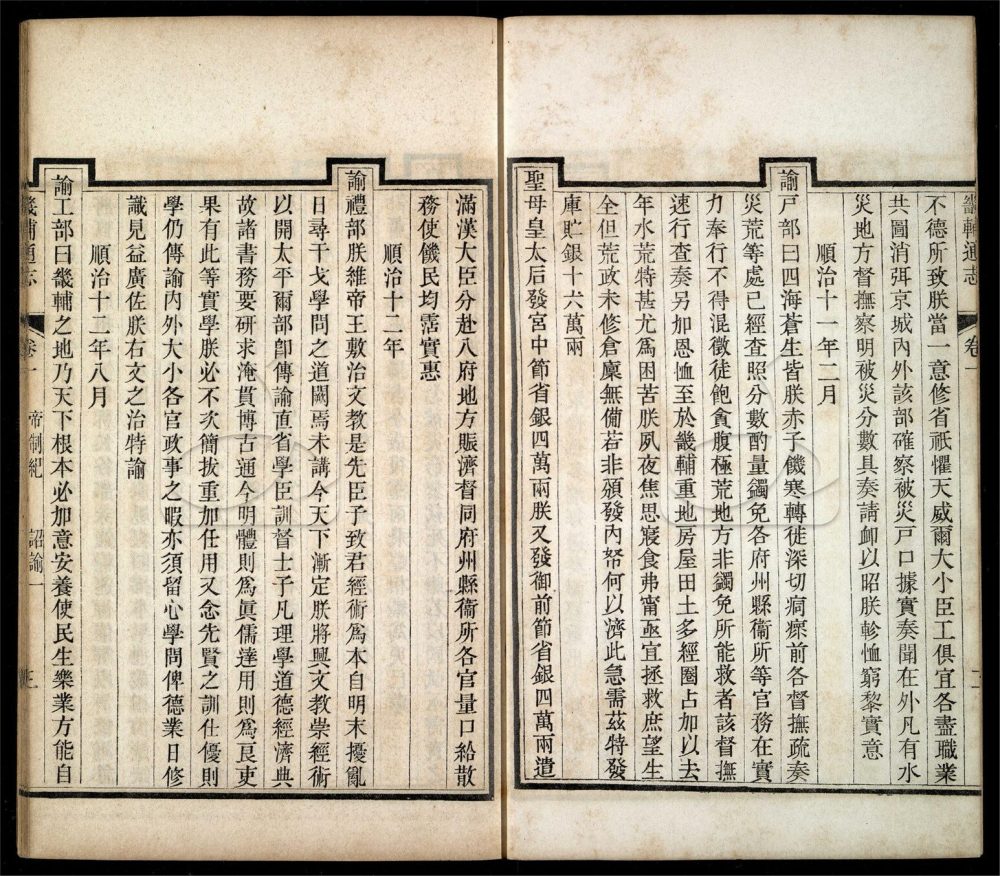 畿輔通志 卷一 二
不德所致朕當一意修省祇懼天威爾大小臣工俱宜各盡職業
共圖消弭京城內外該部確察被災戶口據實奏聞在外凡有水
災地方督撫察明被災分數具奏請卹以昭朕軫恤窮黎實意
順治十一年二月
諭戶部曰四海蒼生皆朕赤子饑寒轉徙深切痌瘝前各督撫疏奏
災荒等處已經查照分數酌量蠲免各府州縣衞所等官務在實
力奉行不得混徵徒飽貪腹極荒地方非蠲免所能救者該督撫
速行查奏另加恩恤至於畿輔重地房屋田土多經圈占加以去
年水荒特甚尤爲困苦朕夙夜焦思寢食弗甯亟宜拯救庶望生
全但荒政未修倉廪無備若非頒發內帑何以濟此急需茲特發
庫貯銀十六萬兩
聖母皇太后發宮中節省銀四萬兩朕又發御前節省銀四萬兩遣
滿漢大臣分赴八府地方賑濟督同府州縣衞所各官量口給散
務使饑民均霑實惠
順治十二年
諭禮部朕維帝王敷治文教是先臣子致君經術爲本自明末擾亂
日尋干戈學問之道闕焉未講今天下漸定朕將興文教崇經術
以開太平爾部卽傳諭直省學臣訓督士子凡理學道德經濟典
故諸書務要研求淹貫博古通今明體則爲眞儒達用則爲良吏
果有此等實學朕必不次簡拔重加任用又念先賢之訓仕優則
學仍傳諭內外大小各官政事之暇亦須留心學問俾德業日修
識見益廣佐朕右文之治特諭
順治十二年八月
諭工部曰畿輔之地乃天下根本必加意安養使民生樂業方能自
畿輔通志 卷一 帝制紀 詔諭一 三